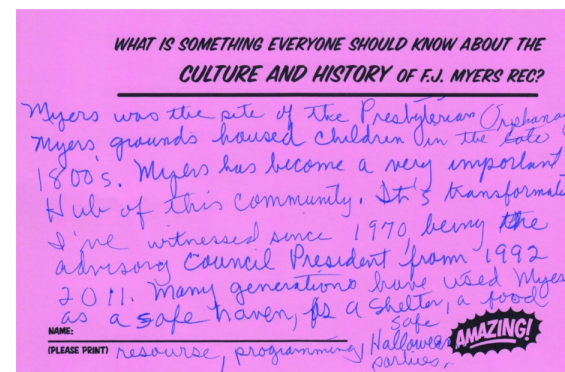 WHAT IS SOMETHING EVERYONE SHOULD KNOW ABOUT THE
CULTURE AND HISTORY OF F.J. MYERS REC?
Myers was the site of the Presbyterian Orphanag
Myers grounds housed children in the late
1800's. Myers has become a very important
Hub of this community. It's transformati
I've witnessed since 1970, being the
advisory Council President from 1992
2011. Many generations have used Myers
as a safe haven, as a shelter, a food
NAME:
(PLEASE PRINT) resourse, programming, safe Halloween parties.
AMAZING!